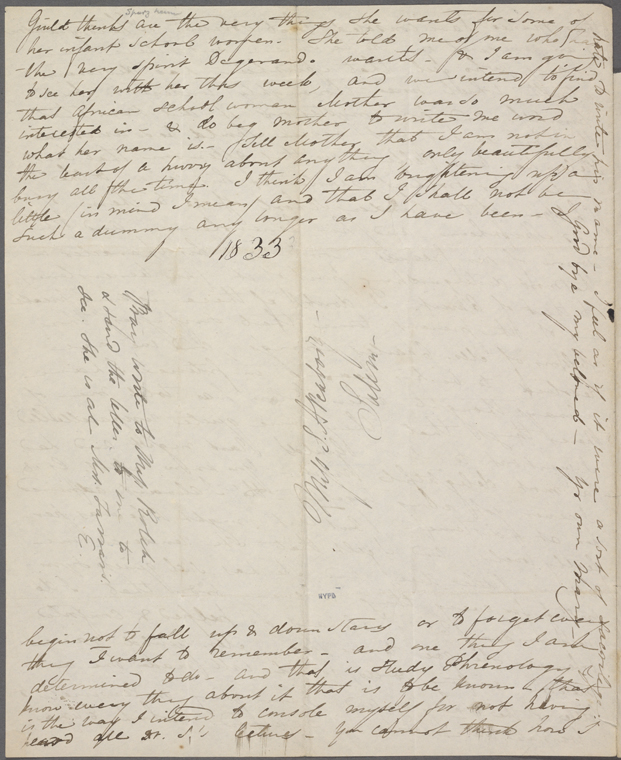 Guild thinks are the very things she wants for some of
her infant school women. She told me of one who
the very spirit Degerando wants. & I am going
to see her with her this week, and we intend to find
that African school woman Mother was so much
interested in - & do beg mother to write me word
what her name is. - Tell Mother that I am not in
the least of a hurry about anything only beautifully
busy all the time. I think I am brightening up a
little in mind I mean, and that I shall not be
such a dummy any longer as I have been -
1833
hate to write his name - I feel as if it were a sort of
Good bye my beloved - Yr own Mary
Pray write to Miss Rolah
& send the letter to me to
see. She is at Mrs.
E.
Miss S.
begin not to fall up & down stairs or to forget every
thing I want to remember - and one thing I am
determined to do - and that is study Phrenology &
know every thing about it that is to be known - that
is the way I intend to console myself for not having
heard all Dr. S.'s lectures - You cannot think how I
NYPB